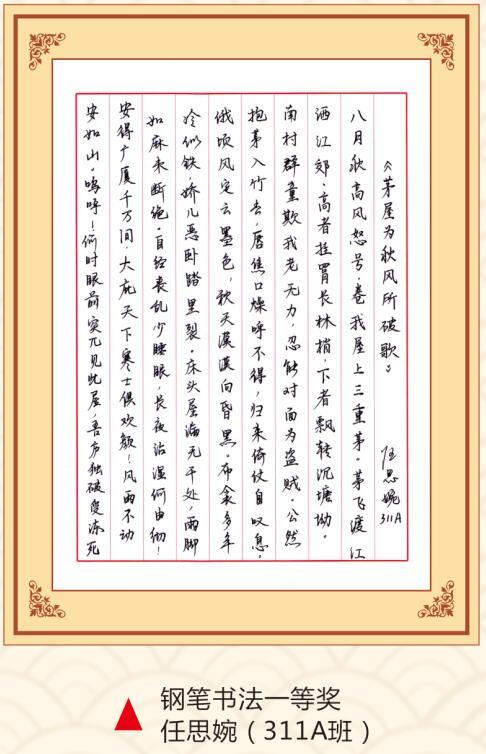 《茅屋为秋风所破歌》 任思婉 311A
八月秋高风怒号,卷我屋上三重茅。茅飞渡江
洒江郊,高者挂罥长林梢,下者飘转沉塘坳。
南村群童欺我老无力,忍能对面为盗贼。公然
抱茅入竹去,唇焦口燥呼不得,归来倚仗自叹息。
俄顷风定云墨色,秋天漠漠向昏黑。布衾多年
冷似铁,娇儿恶卧踏里裂。床头屋漏无干处,雨脚
如麻未断绝。自经丧乱少睡眠,长夜沾湿何由彻!
安得广厦千万间,大庇天下寒士俱欢颜!风雨不动
安如山。呜呼!何时眼前突兀见此屋,吾庐独破受冻死
钢笔书法一等奖
任思婉(311A班)